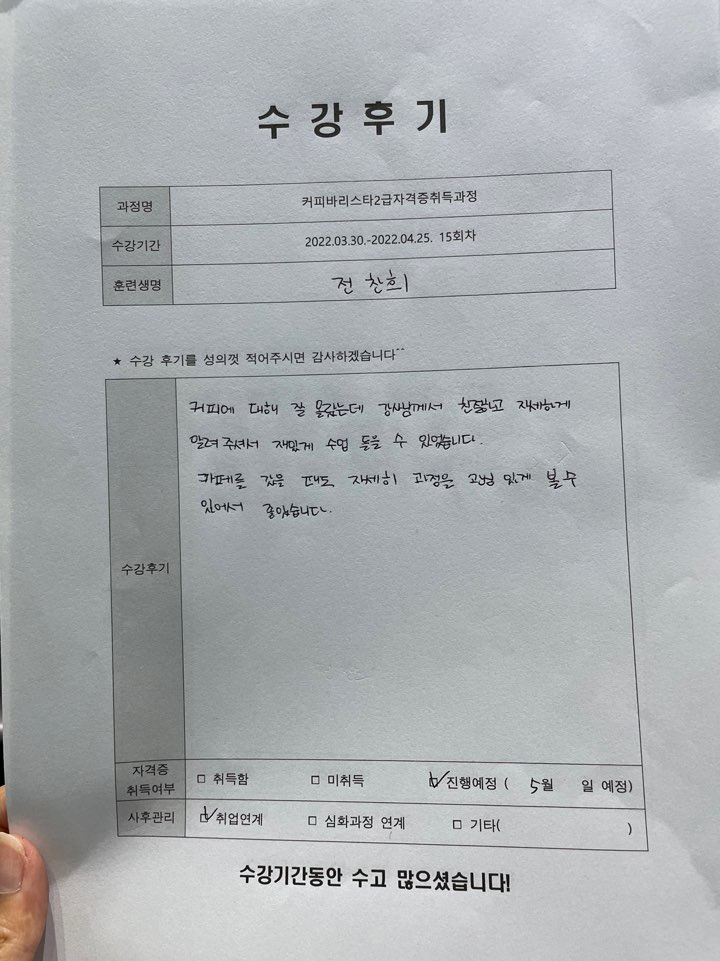 수강후기
과정명 커피바리스타2급자격증취득과정
수강기간 2022.03.30.-2022.04.25. 15회차
훈련생명 전찬희
★ 수강 후기를 성의껏 적어주시면 감사하겠습니다^^
커피에 대해 잘 몰랐는데 강사님께서 친절하고 자세하게
알려주셔서 재밌게 수업 들을 수 있었습니다.
카페를 갔을 때도 자세히 과정을 있게 볼 수
있어서 좋았습니다.
수강후기
자격증
취득여부 □ 취득함 □ 미취득 ☑ 진행예정 ( 5월 일 예정)
사후관리 ☑ 취업연계 □ 심화과정 연계 □ 기타( )
수강기간동안 수고 많으셨습니다!